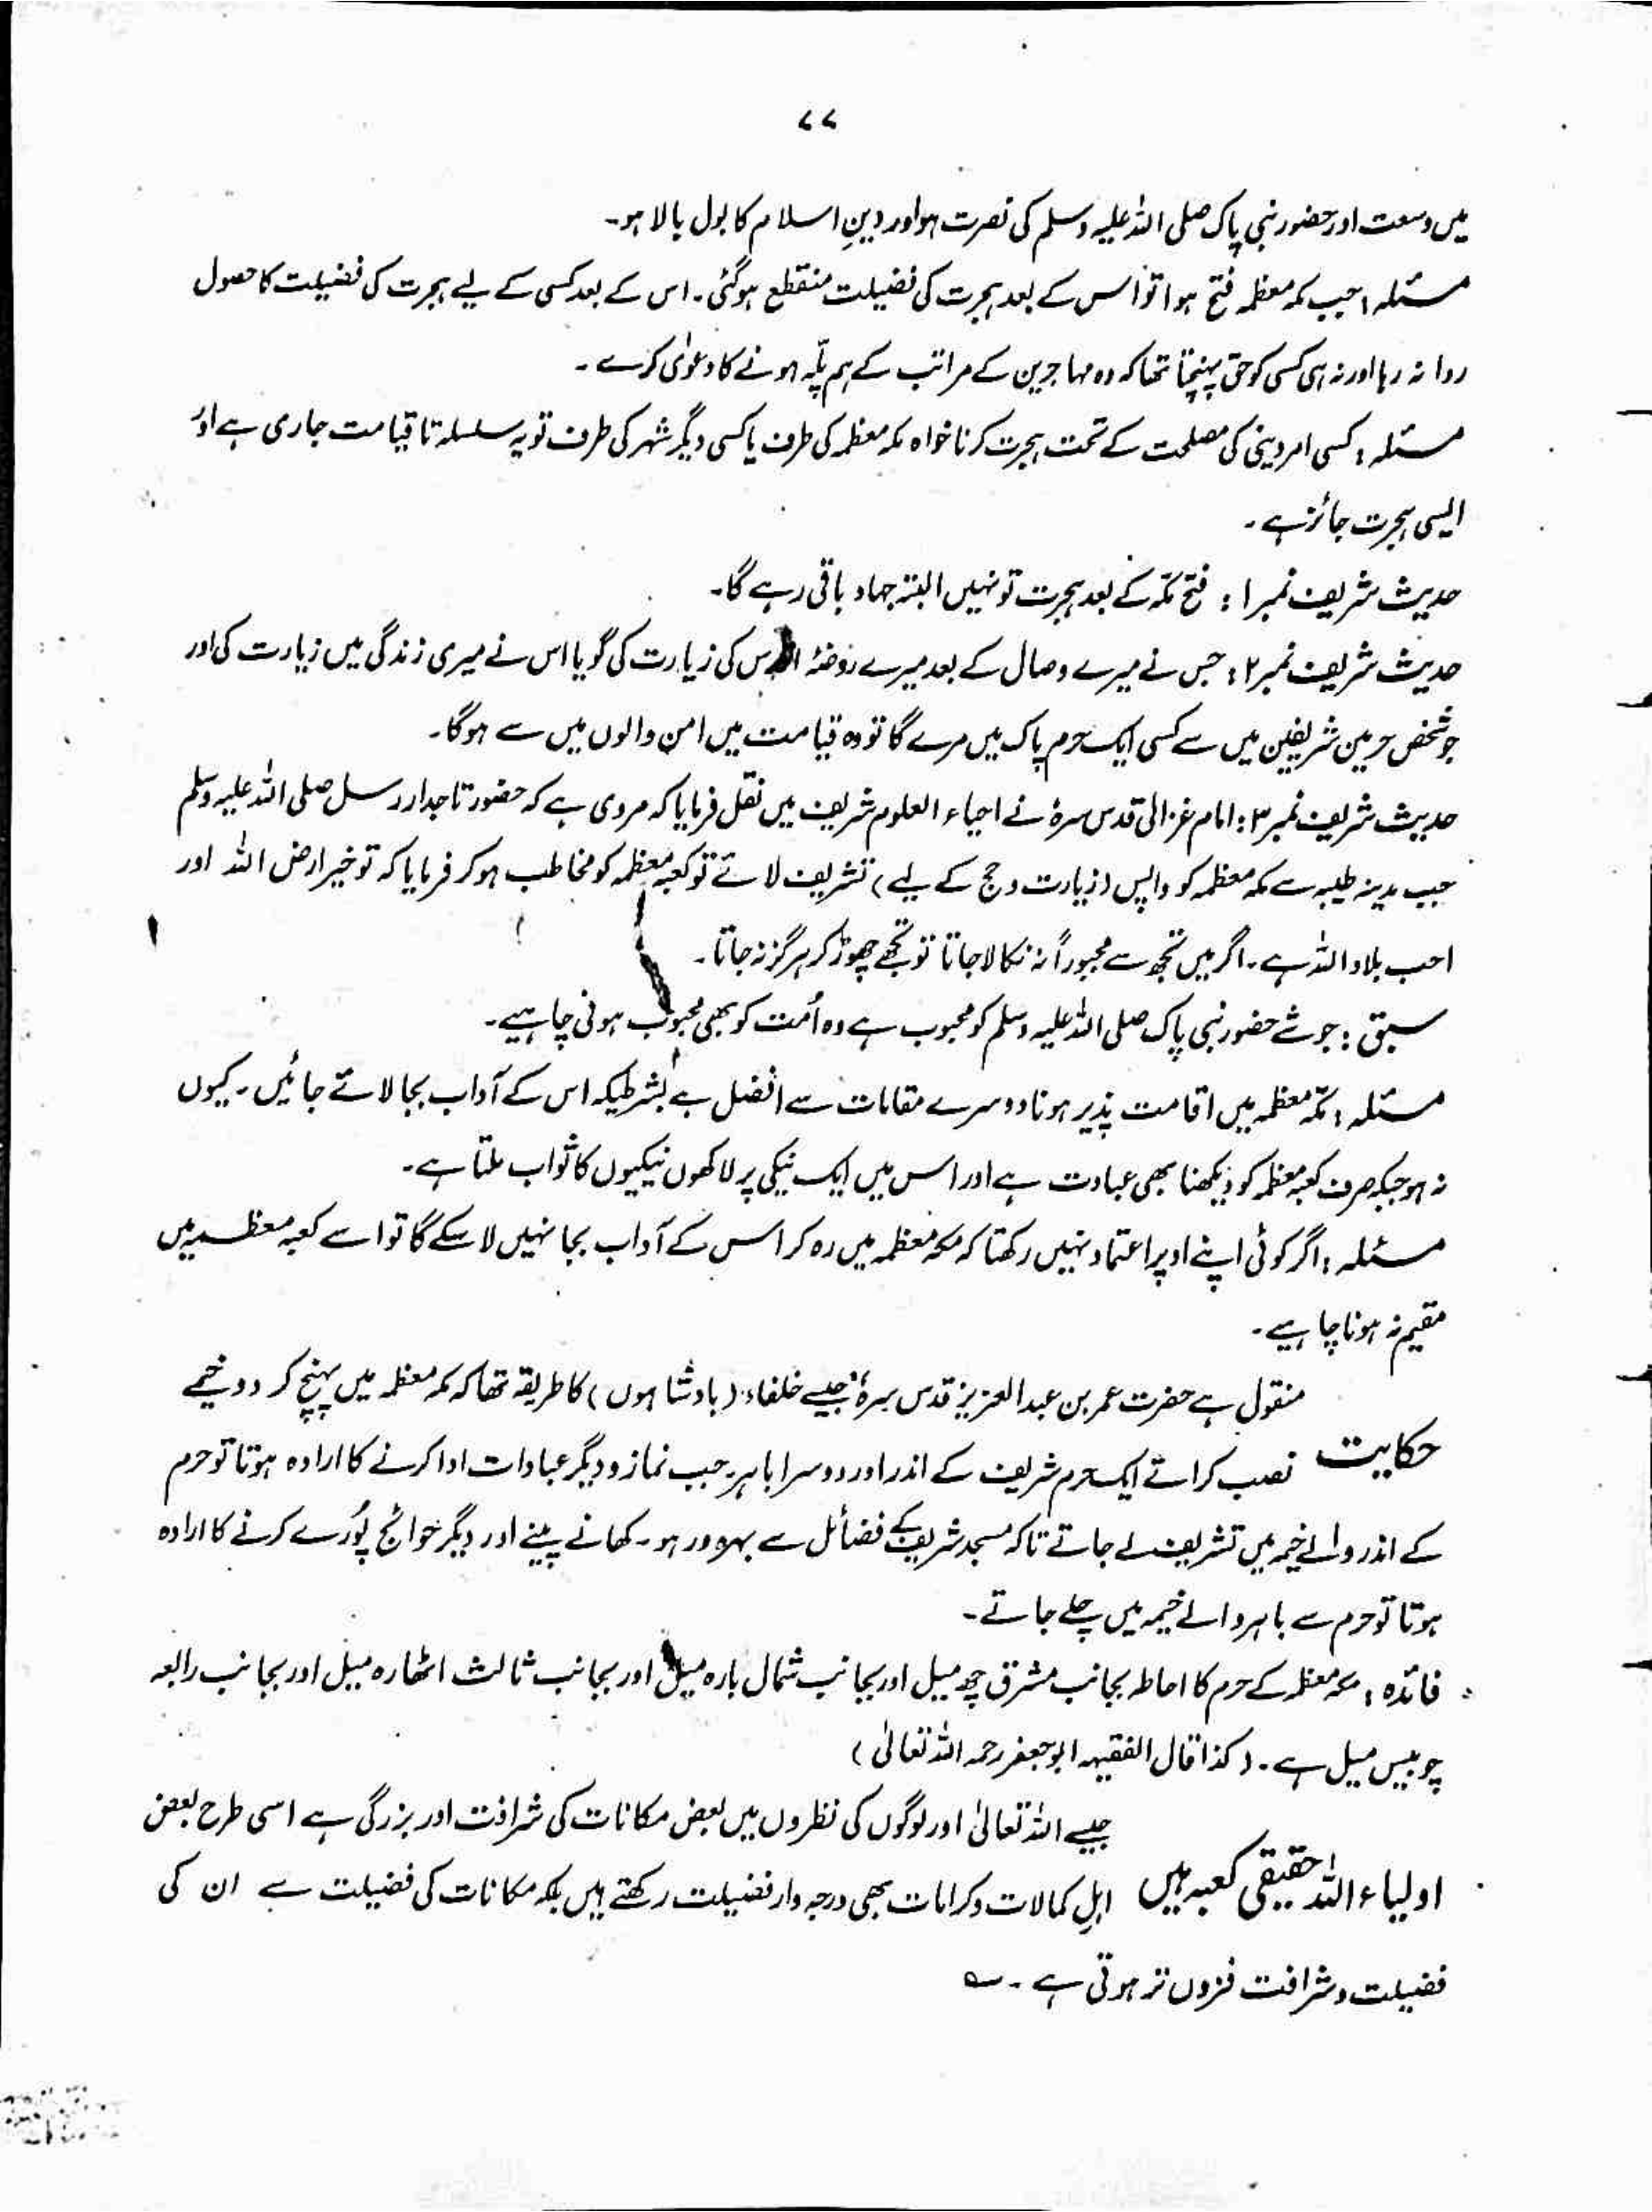 ۷۷
میں وسعت اور حضور نبی پاک صلی اللہ علیہ وسلم کی نصرت ہو اور دینِ اسلام کا بول بالا ہو۔
مسئلہ: جب مکہ معظمہ فتح ہوا تو اُس کے بعد ہجرت کی فضیلت منقطع ہو گئی۔ اس کے بعد کسی کے لیے ہجرت کی فضیلت کا حصول
روا نہ رہا اور نہ ہی کسی کو حق پہنچتا تھا کہ وہ مہاجرین کے مراتب کے ہم پلّہ ہونے کا دعوٰی کرے۔
مسئلہ: کسی امر دینی کی مصلحت کے تحت ہجرت کرنا خواہ مکہ معظمہ کی طرف یا کسی دیگر شہر کی طرف تو یہ سلسلہ تا قیامت جاری ہے اور
ایسی ہجرت جائز ہے۔
حدیث شریف نمبر ۱: فتح مکّہ کے بعد ہجرت تو نہیں البتہ جہاد باقی رہے گا۔
حدیث شریف نمبر ۲: جس نے میرے وصال کے بعد میرے روضۂ اقدس کی زیارت کی گویا اس نے میری زندگی میں زیارت کی اور
جو شخص حرمین شریفین میں سے کسی ایک حرم پاک میں مرے گا تو وہ قیامت میں امن والوں میں سے ہوگا۔
حدیث شریف نمبر ۳: امام غزالی قدس سرہٗ نے احیاء العلوم شریف میں نقل فرمایا کہ مروی ہے کہ حضور تاجدار رسل صلی اللہ علیہ وسلم
جب مدینہ طیبہ سے مکہ معظمہ کو واپس (زیارت و حج کے لیے) تشریف لائے تو کعبہ معظمہ کو مخاطب ہو کر فرمایا کہ تو خیر ارض اللہ اور
احب بلاد اللہ ہے۔ اگر میں تجھ سے مجبوراً نہ نکالا جاتا تو تجھے چھوڑ کر ہرگز نہ جاتا۔
سبق: جو شے حضور نبی پاک صلی اللہ علیہ وسلم کو محبوب ہے وہ اُمت کو بھی محبوب ہونی چاہیے۔
مسئلہ: مکّہ معظمہ میں اقامت پذیر ہونا دوسرے مقامات سے افضل ہے بشرطیکہ اس کے آداب بجا لائے جائیں۔ کیوں
نہ ہو جبکہ صرف کعبہ معظمہ کو دیکھنا بھی عبادت ہے اور اس میں ایک نیکی پر لاکھوں نیکیوں کا ثواب ملتا ہے۔
مسئلہ: اگر کوئی اپنے اوپر اعتماد نہیں رکھتا کہ مکہ معظمہ میں رہ کر اس کے آداب بجا نہیں لا سکے گا تو اسے کعبہ معظمہ میں
مقیم نہ ہونا چاہیے۔
منقول ہے حضرت عمر بن عبد العزیز قدس سرہٗ جیسے خلفاء (بادشاہوں) کا طریقہ تھا کہ مکہ معظمہ میں پہنچ کر دو خیمے
حکایت نصب کراتے ایک حرم شریف کے اندر اور دوسرا باہر۔ جب نماز و دیگر عبادات ادا کرنے کا ارادہ ہوتا تو حرم
کے اندر والے خیمہ میں تشریف لے جاتے تاکہ مسجد شریف کے فضائل سے بہرہ ور ہو۔ کھانے پینے اور دیگر حوائج پُورے کرنے کا ارادہ
ہوتا تو حرم سے باہر والے خیمہ میں چلے جاتے۔
فائدہ: مکہ معظمہ کے حرم کا احاطہ بجانب مشرق چھ میل اور بجانب شمال بارہ میل اور بجانب ثالث اٹھارہ میل اور بجانب رابعہ
چوبیس میل ہے۔ (کذا قال الفقیہہ ابو جعفر رحمہ اللہ تعالیٰ)
جیسے اللہ تعالیٰ اور لوگوں کی نظروں میں بعض مکانات کی شرافت اور بزرگی ہے اسی طرح بعض
اولیاء اللہ حقیقی کعبہ ہیں اہلِ کمالات و کرامات بھی درجہ وار فضیلت رکھتے ہیں بلکہ مکانات کی فضیلت سے ان کی
فضیلت و شرافت فزوں تر ہوتی ہے۔ ؎